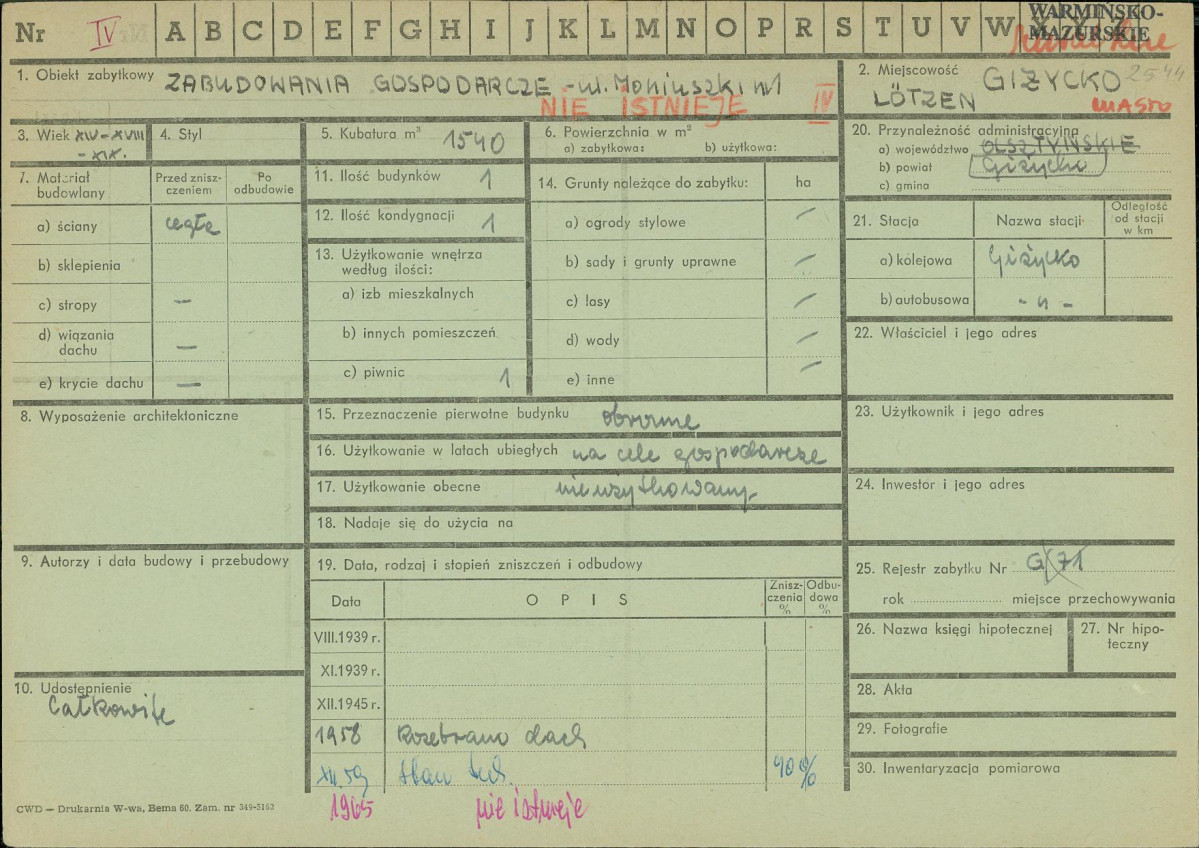 Nr IV A B C D E F G H I J K L M N O P R S T U V W
WARMIŃSKO-
MAZURSKIE
1. Obiekt zabytkowy ZABUDOWANIA GOSPODARCZE - ul. Moniuszki nr 1
NIE ISTNIEJE IV
2. Miejscowość GIŻYCKO 2544
LÖTZEN MIASTO
3. Wiek XIV-XVIII
-XIX.
4. Styl
5. Kubatura m³ 1540
6. Powierzchnia w m²
a) zabytkowa: b) użytkowa:
7. Materiał
budowlany
Przed znisz-
czeniem
Po
odbudowie
a) ściany cegła
b) sklepienia
c) stropy —
d) wiązania
dachu —
e) krycie dachu —
8. Wyposażenie architektoniczne
9. Autorzy i data budowy i przebudowy
10. Udostępnienie
Całkowite
11. Ilość budynków 1
12. Ilość kondygnacji 1
13. Użytkowanie wnętrza
według ilości:
a) izb mieszkalnych
b) innych pomieszczeń
c) piwnic 1
14. Grunty należące do zabytku: ha
a) ogrody stylowe —
b) sady i grunty uprawne —
c) lasy —
d) wody —
e) inne —
15. Przeznaczenie pierwotne budynku obronne
16. Użytkowanie w latach ubiegłych na cele gospodarcze
17. Użytkowanie obecne nieużytkowany
18. Nadaje się do użycia na
19. Data, rodzaj i stopień zniszczeń i odbudowy
Data OPIS Znisz-
czenia
% Odbu-
dowa
%
VIII.1939 r.
XI.1939 r.
XII.1945 r.
1958 Rozebrano dach
XII.59 stan tech. 40%
1965 nie istnieje
20. Przynależność administracyjna
a) województwo OLSZTYŃSKIE
b) powiat Giżycko
c) gmina
21. Stacja Nazwa stacji Odległość
od stacji
w km
a) kolejowa Giżycko
b) autobusowa - " -
22. Właściciel i jego adres
23. Użytkownik i jego adres
24. Inwestor i jego adres
25. Rejestr zabytku Nr G/71
rok miejsce przechowywania
26. Nazwa księgi hipotecznej
27. Nr hipo-
teczny
28. Akta
29. Fotografie
30. Inwentaryzacja pomiarowa
CWD — Drukarnia W-wa, Bema 60. Zam. nr 349-5162